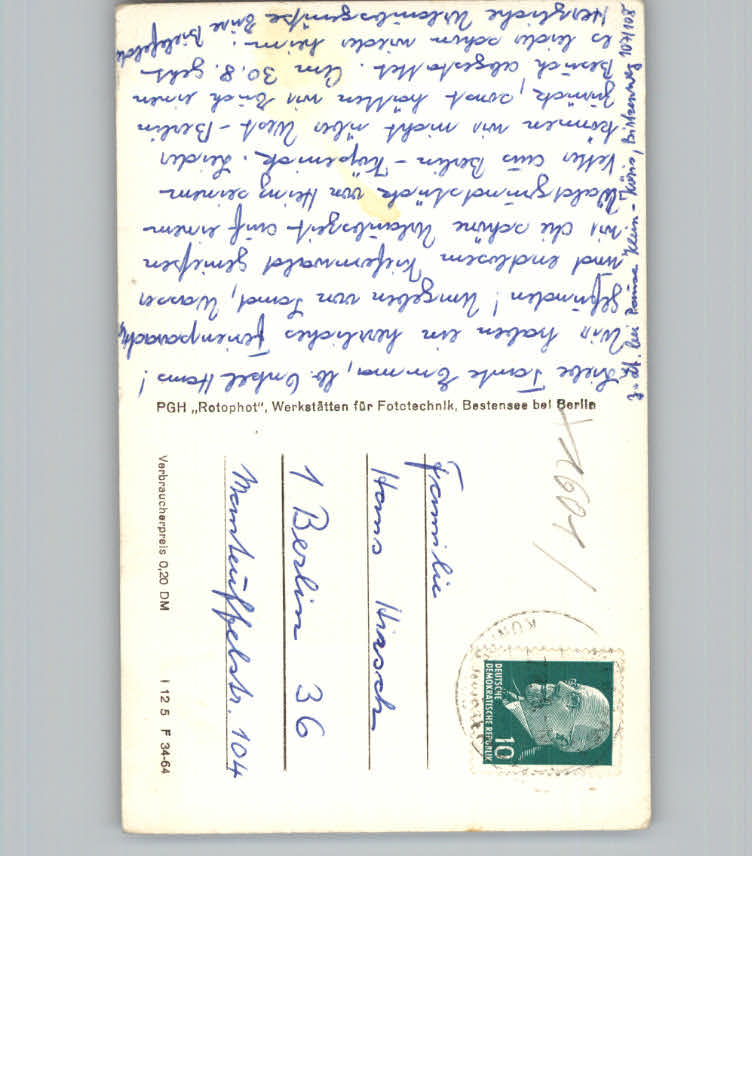 Liebe Tante Emma, lb. Onkel Hans!
Wir haben ein herrliches Ferienparadies
gefunden! Umgeben von Sand, Wasser
und endlosem Kiefernwald genießen
wir die schöne Urlaubszeit auf einem
Waldgrundstück von Heinz seinem
Vetter aus Berlin-Köpenick. Leider
können wir nicht über West-Berlin
zurück, sonst hätten wir Euch einen
Besuch abgestattet. Am 30.8. geht
es leider schon wieder heim.
Herzliche Urlaubsgrüße Eure Bielefelder
z. Zt. bei Klein-Köris,
PGH „Rotophot", Werkstätten für Fototechnik, Bestensee bei Berlin
Familie
Hans Hirsch
1 Berlin 36
Manteuffelstr. 104
Verbraucherpreis 0,20 DM
I 12 5 F 34-64
DEUTSCHE
DEMOKRATISCHE REPUBLIK
10